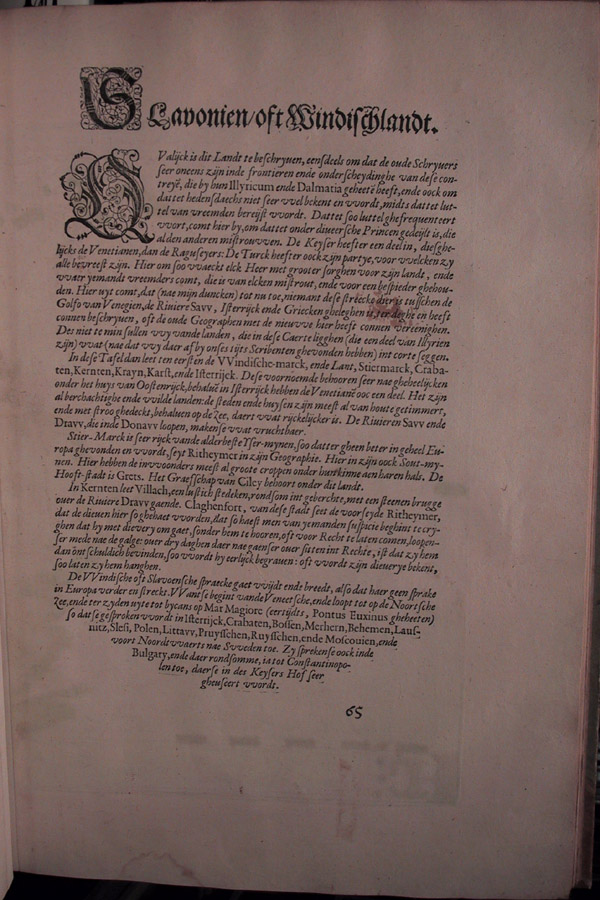 SLavonien/oft Windischlandt.
QValijck is dit Landt te beschryuen, eensdeels om dat de oude Schryuers
seer oneens zijn inde frontieren ende onderscheydinghe van dese con-
treyẽ, die by hun Illyricum ende Dalmatia geheetẽ heeft, ende oock om
dattet hedensdaechs niet seer wel bekent en wordt, midts dattet lut-
tel van vreemden bereyst wordt. Dattet soo luttel ghefrequenteert
wort, comt hier by, om dattet onder diueersche Princen gedeijlt is, die
al den anderen mistrouwen. De Keyser heefter een deel in, diesghe-
lijcks de Venetianen, dan de Raguseyers: De Turck heefter oock zijn partye, voor welcken zy
alle bevreest zijn. Hier om soo waeckt elck Heer met grooter sorghen voor zijn lande, ende
waer yemandt vreemders comt, die is van elcken mistrout, ende voor een bespieder ghehou-
den. Hier uyt comt, dat (nae mijn duncken) tot nu toe, niemant dese streecke die tusschen de
Golfo van Venegien, de Riuiere Savv, Isterrijck ende Griecken gheleghen is, ter deghe en heeft
connen beschryuen, oft de oude Geographen met de nieuwe hier heeft connen vereenighen.
Des niet te min sullen wy vande landen, die in dese Caerte ligghen (die een deel van Illyrien
zijn) wat (nae dat wy daer af by onses tijts Scribenten ghevonden hebben) int corte seggen.
In dese Tafel dan leet ten eersten de VVindische-marck, ende Lant, Stiermarck, Craba-
ten, Kernten, Krayn, Karst, ende Isterrijck. Dese voornoemde behooren seer nae gheheelijcken
onder het huys van Oostenrijck, behaluẽ in Isterrijck hebben de Venetianẽ ooc een deel. Het zijn
al berchachtighe ende wilde landen: de steden ende huysen zijn meest al van houte getimmert,
ende met stroo ghedeckt, behaluen op de Zee, daert wat rijckelijcker is. De Riuieren Savv ende
Dravv, die inde Donavv loopen, makense wat vruchtbaer.
Stier-Marck is seer rijck vande alder beste Yser-mynen, soo datter gheen beter in geheel Eu-
ropa ghevonden en wordt, seyt Ritheymer in zijn Geographie. Hier in zijn oock Sout-my-
nen. Hier hebben de inwoonders meest al groote croppen onder hun kinne aen haren hals. De
Hooft-stadt is Grets. Het Graefschap van Ciley behoort onder dit landt.
In Kernten leet Villach, een lustich stedeken, rondsom int geberchte, met een steenen brugge
ouer de Riuiere Dravv gaende. Claghenfort, van dese stadt seet de voorseyde Ritheymer,
dat de dieuen hier so ghehaet worden, dat so haest men van yemanden suspicie beghint te cry-
ghen dat hy met dievery om gaet, sonder hem te hooren, oft voor Recht te laten comen, loopen-
ser mede nae de galge: ouer dry daghen daer nae gaenser ouer sitten int Rechte, ist dat zy hem
dan ontschuldich bevinden, soo wordt hy eerlijck begrauen: oft wordt zijn dieuerye bekent,
soo laten zy hem hanghen.
De VVindische oft Slavoensche spraecke gaet wijdt ende breedt, also dat haer geen sprake
in Europa verder en streckt. VVantse begint vande Veneetsche, ende loopt tot op de Noortsche
Zee, ende ter zyden uyte tot bycans op Mar Magiore (eertijdts, Pontus Euxinus gheheeten)
so datse gesproken wordt in Isterrijck, Crabaten, Bossen, Merhern, Behemen, Laus-
nitz, Slesi, Polen, Littavv, Pruysschen, Ruysschen, ende Moscouien, ende
voort Noordtwaerts nae Sweden toe. Zy sprekense oock inde
Bulgary, ende daer rondsomme, ia tot Constantinopo-
len toe, daerse in des Keysers Hof seer
gheuseert wordt.
65